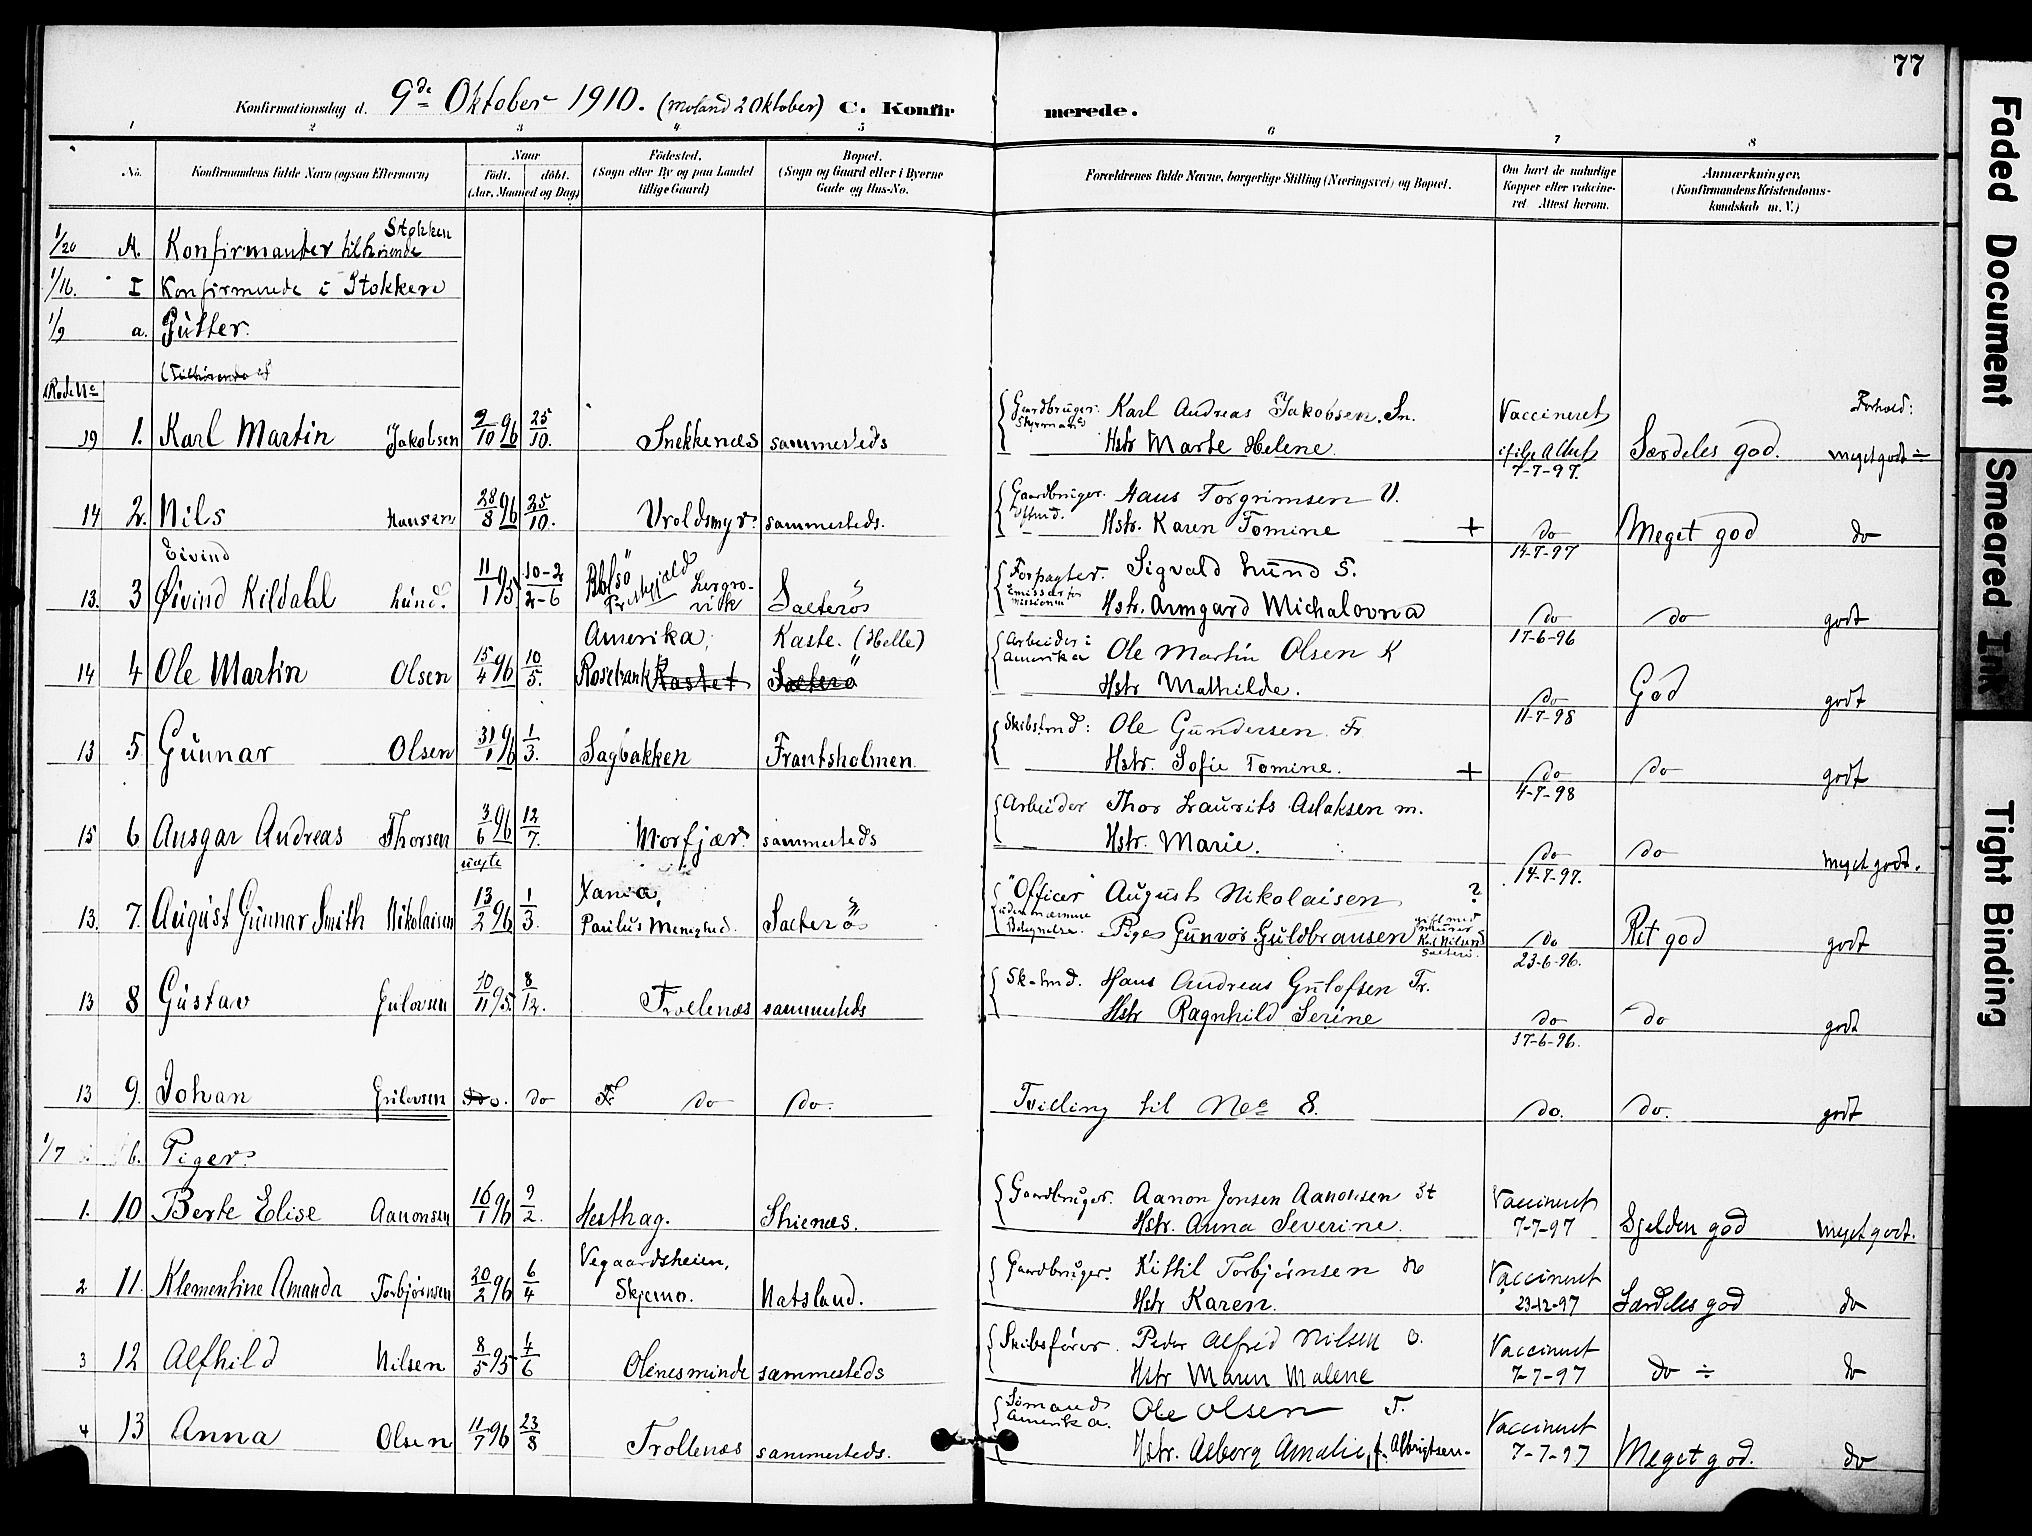 77
Konfirmationsdag d. 9de Oktober 1910. (Moland 2 Oktober) C. Konfirmerede.
1 2 3 4 5 6 7 8
No. Konfirmandens fulde Navn (ogsaa Efternavn)
Naar
Født. døbt.
(Aar, Maaned og Dag)
Fødested.
(Sogn eller By og paa Landet
tillige Gaard)
Bopæl.
(Sogn og Gaard eller i Byerne
Gade og Hus-No.
Forældrenes fulde Navne, borgerlige Stilling (Næringsvei) og Bopæl.
Om havt de naturlige
Kopper eller vaccine-
ret Attest herom.
Anmærkninger,
(Konfirmandens Kristendoms-
kundskab m. V.)
1/20 A. Konfirmanter tilhørende Stokken
1/16. I Konfirmerede i Stokken
1/9 a. Gutter.
Rode No
Forhold:
19 1. Karl Martin Jakobsen 9/10 96 25/10. Snekkenæs sammesteds Gaardbruger. Karl Andreas Jakobsen. Sn.
Hstr Marte Helene. Vaccineret
7-7-97. Særdeles god. meget godt
14 2. Nils Hansen 28/8 96 25/10. Vroldsmyr. sammesteds. Gaardbruger. Hans Torgrimsen V.
Hstr. Karen Tomine + do
14-7-97 Meget god do
Eivind
13. 3 Øivind Kildahl Lund. 11/1 95 10-2/2-6 Sæterø Forpagter. Sigvald Lund S.
Emissær for Missionen Hstr. Armgard Michalovna do
17-6-96 do godt
14 4 Ole Martin Olsen 15/4 96 10/5. Amerika, Rosebank Kastet Kaste. (Helle) Sæterø Arbeider i Amerika Ole Martin Olsen K
Hstr Mathilde. do
11-7-98 God godt
13 5 Gunnar Olsen 31/1 96 1/3. Sagbakken Frantsholmen. Skibstmd: Ole Gundersen. Fr
Hstr. Sofie Tomine. + do
4-7-98 do godt
15 6 Ansgar Andreas Thorsen 3/6 96 12/7. Morfjær sammesteds Arbeider Thor Laurits Aslaksen m.
Hstr. Marie. do
14-7-97. do meget godt.
uægte
13. 7. August Gunnar Smith Nikolaisen 13/2 96 1/3. Xania, Paulus Menighed. Sæterø "Officer" August Nikolaisen ?
uden nærmere Betegnelse. Pige Gunvor Guldbransen gift med do
23-6-96. Ret god godt
13 8 Gustav Gulovsen 10/11 95. 8/12. Trollenæs sammesteds Sk-tmd. Hans Andreas Gulofsen Tr.
Hstr Ragnhild Serine do
17-6-96. do godt
13 9. Johan Gulovsen do. do do do. Tvilling til No 8. do. do. godt
1/7 b. Piger
1. 10 Berte Elise Aanonsen 16/1 96 9/2. Hesthag. Skienæs. Gaardbruger. Aanon Jensen Aanonsen St
Hstr. Anna Severine. Vaccineret
7-7-97 Sjelden god meget godt.
2 11. Klementine Amanda Torbjørnsen 20/2 96 6/4 Vegaardsheien, Natsland. Gaardbruger. Kittil Torbjørnsen N
Hstr Karen. Vaccineret
23-12-97 Særdeles god do
3 12 Alfhild Nilsen 8/5 95 4/6 Olinesminde sammesteds Skibsfører. Peder Alfred Nilsen O.
Hstr Maren Malene Vaccineret
7-7-97 do ÷ do
4 13 Anna Olsen 11/7 96 23/8 Trollenæs sammesteds. Sømand Amerika. Ole Olsen T.
Hstr. Aslborg Amalie, f. Albrigtsen Vaccineret
7-7-97 Meget god. do
Faded Document
Smeared Ink
Tight Binding